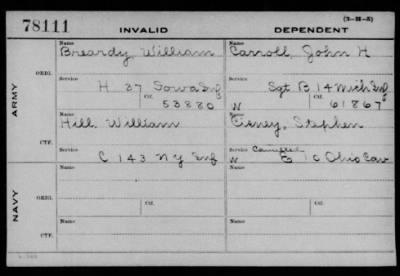 78111 INVALID DEPENDENT (3-H-5)
Name Name
Breardy William Carroll, John H
ORIG.
Service Service
H 37 Iowa Inf Sgt B 14 Mich Inf
Ctf. Ctf.
53880 W 61867
ARMY
Name Name
Hill William Cisney, Stephen
CTF.
Service Service Cancelled
C 143 NY Inf W G 10 Ohio Cav
Name Name
ORIG.
Service Ctf. Service Ctf.
NAVY
Name Name
CTF.